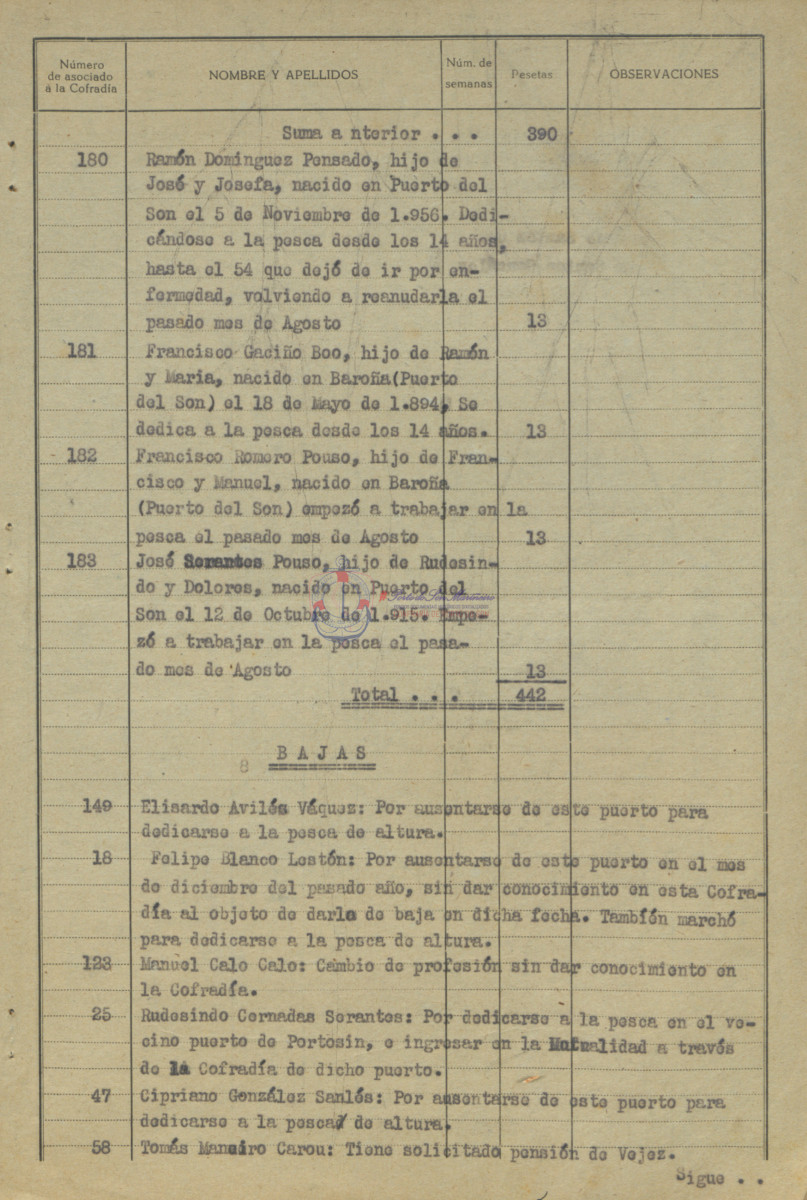 Número de asociado a la Cofradía | NOMBRE Y APELLIDOS | Núm. de semanas | Pesetas | OBSERVACIONES
Suma anterior . . . 390
180 Ramón Dominguez Pensado, hijo de
José y Josefa, nacido en Puerto del
Son el 5 de Noviembre de 1.956. Dedi-
cándose a la pesca desde los 14 años,
hasta el 54 que dejó de ir por en-
fermedad, volviendo a reanudarla el
pasado mes de Agosto 13
181 Francisco Gaciño Boo, hijo de Ramón
y Maria, nacido en Baroña(Puerto
del Son) el 18 de Mayo de 1.894, Se
dedica a la pesca desde los 14 años. 13
182 Francisco Romero Pouso, hijo de Fran-
cisco y Manuel, nacido en Baroña
(Puerto del Son) empozó a trabajar en la
pesca el pasado mes de Agosto 13
183 José Sorantes Pouso, hijo de Rudesin-
do y Dolores, nacido en Puerto del
Son el 12 de Octubre de 1.915. Empe-
zó a trabajar en la pesca el pasa-
do mes de Agosto 13
Total . . . 442
B A J A S
8
149 Elisardo Avilés Váquez: Por ausentarse de este puerto para
dedicarse a la pesca de altura.
18 Felipe Blanco Lestón: Por ausentarse de este puerto en el mes
de diciembre del pasado año, sin dar conocimiento en esta Cofra-
día al objeto de darle de baja en dicha fecha. Tambíón marchó
para dedicarse a la pesca de altura.
123 Manuel Calo Calo: Cambio de profesión sin dar conocimiento en
la Cofradía.
25 Rudesindo Cernadas Serantes: Por dedicarse a la pesca en el ve-
cino puerto de Portosin, e ingresar en la Mutualidad a través
de la Cofradía de dicho puerto.
47 Cipriano González Sanlés: Por ausentarse de este puerto para
dedicarse a la pesca de altura.
58 Tomás Maneiro Carou: Tiene solicitado pensión de Vejez.
Sigue . .